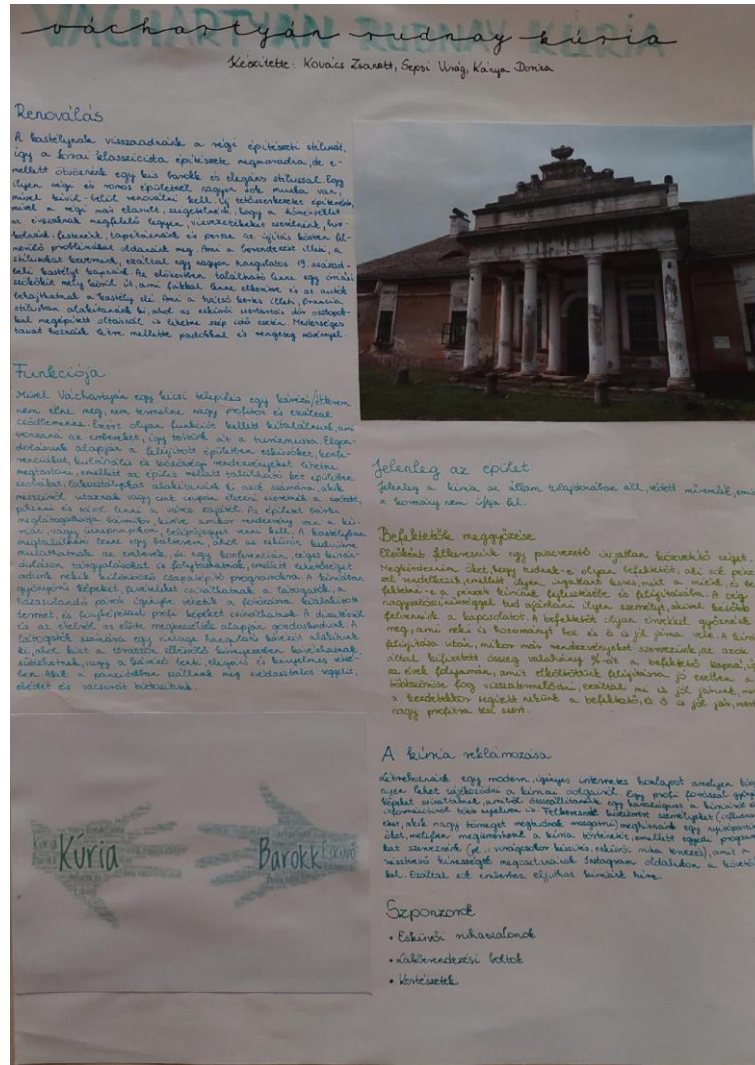 VÁCHARTYÁN RUDNAY KÚRIA
váchartyán rudnay kúria
Készítette: Kovács Zsanett, Sepsi Virág, Kánya Dorina
Renoválás
A kastélynak visszaadnánk a régi építészeti stílusát,
így a korai klasszicista építészete megmaradna, de e-
mellett ötvöznénk egy kis barokk és elegáns stílussal. Egy
ilyen régi és romos épületnél nagyon sok munka van,
mivel kívül-belül renoválni kell. Új tetőszerkezetet építenénk,
mivel a régi már elavult, szigetelnénk, hogy a hőmérséklet
az évszaknak megfelelő legyen, vízvezetékeket cserélnénk, bur-
kolnánk, festenénk, tapétáznánk és persze az újítás közben fel-
merülő problémákat oldanánk meg. Ami a berendezést illeti, a
stílusokat kevernénk, ezáltal egy nagyon hangulatos 19. század-
beli kastélyt kapnánk. Az előkertben található lenne egy óriási
szökőkút mely körül út, ami fákkal lenne elkerítve és az autók
behajthatnak a kastély elé. Ami a hátsó kertet illeti, francia
stílusban alakítanánk ki, ahol az esküvői szertartás dór oszlopok-
kal megépített oltárnál is lehetne szép idő esetén. Mesterséges
tavat hoznánk létre mellette padokkal és rengeteg növénnyel.
Funkciója
Mivel Váchartyán egy kicsi település egy kávézó/étterem
nem élne meg, nem termelne nagy profitot és ezáltal
csődbemenne. Ezért olyan funkciót kellett kitalálnunk, ami
vonzaná az embereket, így tértünk át a turizmusra. Elgon-
dolásunk alapján a felújított épületben esküvőket, konfe-
renciákat, kulturális és közösségi rendezvényeket lehetne
megtartani, emellett az épület mellett található két épületben
szobákat, lakosztályokat alakítanánk ki, azok számára, akik
messziről utaznak vagy csak csupán élvezni szeretnék a csöndet,
pihenni és távol lenni a város zajától. Az épületet bárki
meglátogathatja bármikor, kivéve amikor rendezvény van a kú-
riában, vagy ünnepnapokon, belépőjegyet venni kell. A kastélyban
megtalálható lenne egy bálterem, ahol az esküvők kedvükre
mulathatnak az emberek, de egy konferencián, céges kirán-
duláson tárgyalásokat is folytathatnak, emellett lehetőséget
adunk nekik különböző csapatépítő programokra. A kúriában
gyönyörű képeket, portrékat csinálhatnak a látogatók, a
házasulandó párok igénybe vehetik a fotózásra kialakított
termet, és lenyűgöző profi képeket csinálhatnak. A díszítésről
és az ételről az előre megbeszéltek alapján gondoskodunk. A
látogatók számára egy vintage hangulatú kávézót alakítunk
ki, ahol kint a teraszon elbűvölő környezetben kávézhatnak,
süthetnek, vagy a kávézó benti, elegáns és kényelmes részé-
ben. Akik a panzióban szállnak meg svédasztalos reggelit,
ebédet és vacsorát biztosítunk.
Jelenleg az épület
Jelenleg a kúria az állam tulajdonában áll, védett műemlék,
a kormány nem újítja fel.
Befektetők meggyőzése
Elsőként felkeresnünk egy piacvezető ingatlan közvetítő céget.
Megkérdeznénk őket, hogy tudnak-e olyan befektetőt, aki sok pénz-
zel rendelkezik, emellett ilyen ingatlant keres, mint a miénk és
fektetni-e a pénzét kúriánk fejlesztésébe és felújításába. A cég
nagyvalószínűséggel tud ajánlani ilyen személyt, akivel később
felvennénk a kapcsolatot. A befektetőt olyan érvekkel győznénk
meg, ami neki is hozományt hoz és ő is jól járna vele. A kúria
felújítása után, mikor már rendezvényeket szervezünk, az azok
által kifizetett összeg valahány %-át a befektető kapná,
az évek folyamán, amit elköltöttünk felújításra jó esetben a
többszöröse fog visszatermelődni, ezáltal mi is jól járunk,
a kezdetekkor segített nekünk a befektető, ő is jól jár, mert
nagy profitra tesz szert.
A kúria reklámozása
Létrehoznánk egy modern, igényes internetes honlapot amelyen
nyen lehet tájékozódni a kúriai dolgairól. Egy profi fotóssal
képeket csináltatnánk, amiből összeállítanánk egy katalógust a kúriáról
információval több nyelven is. Felkeresnénk közismert személyeket
akik nagy tömeget meghívnánk egy
melyben megünnepelnénk a kúria történetét, emellett egyedi
kat szerveznénk (pl.: virágcsokor készítés, esküvői ruha tervezés), amit a
résztvevő hírességek megosztanának Instagram oldalukon a
kel. Ezáltal sok emberhez eljuthat kúriánk híre.
Szponzorok
• Esküvői ruhaszalonok
• Lakberendezési boltok
• Kertészetek
Kúria
Barokk
Esküvő